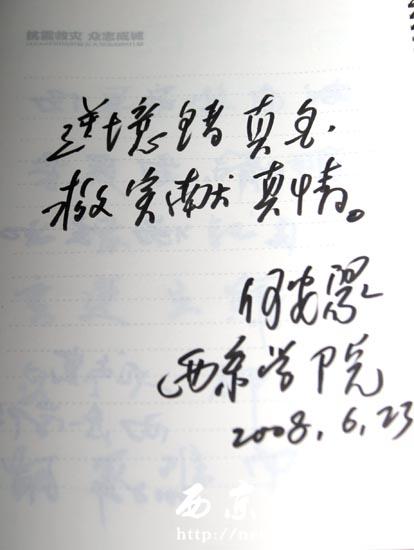 抗震救灾 众志成城
逆境铸真金.
救灾献真情。
何安
西京学院
2008.6.23
西京
http://ne